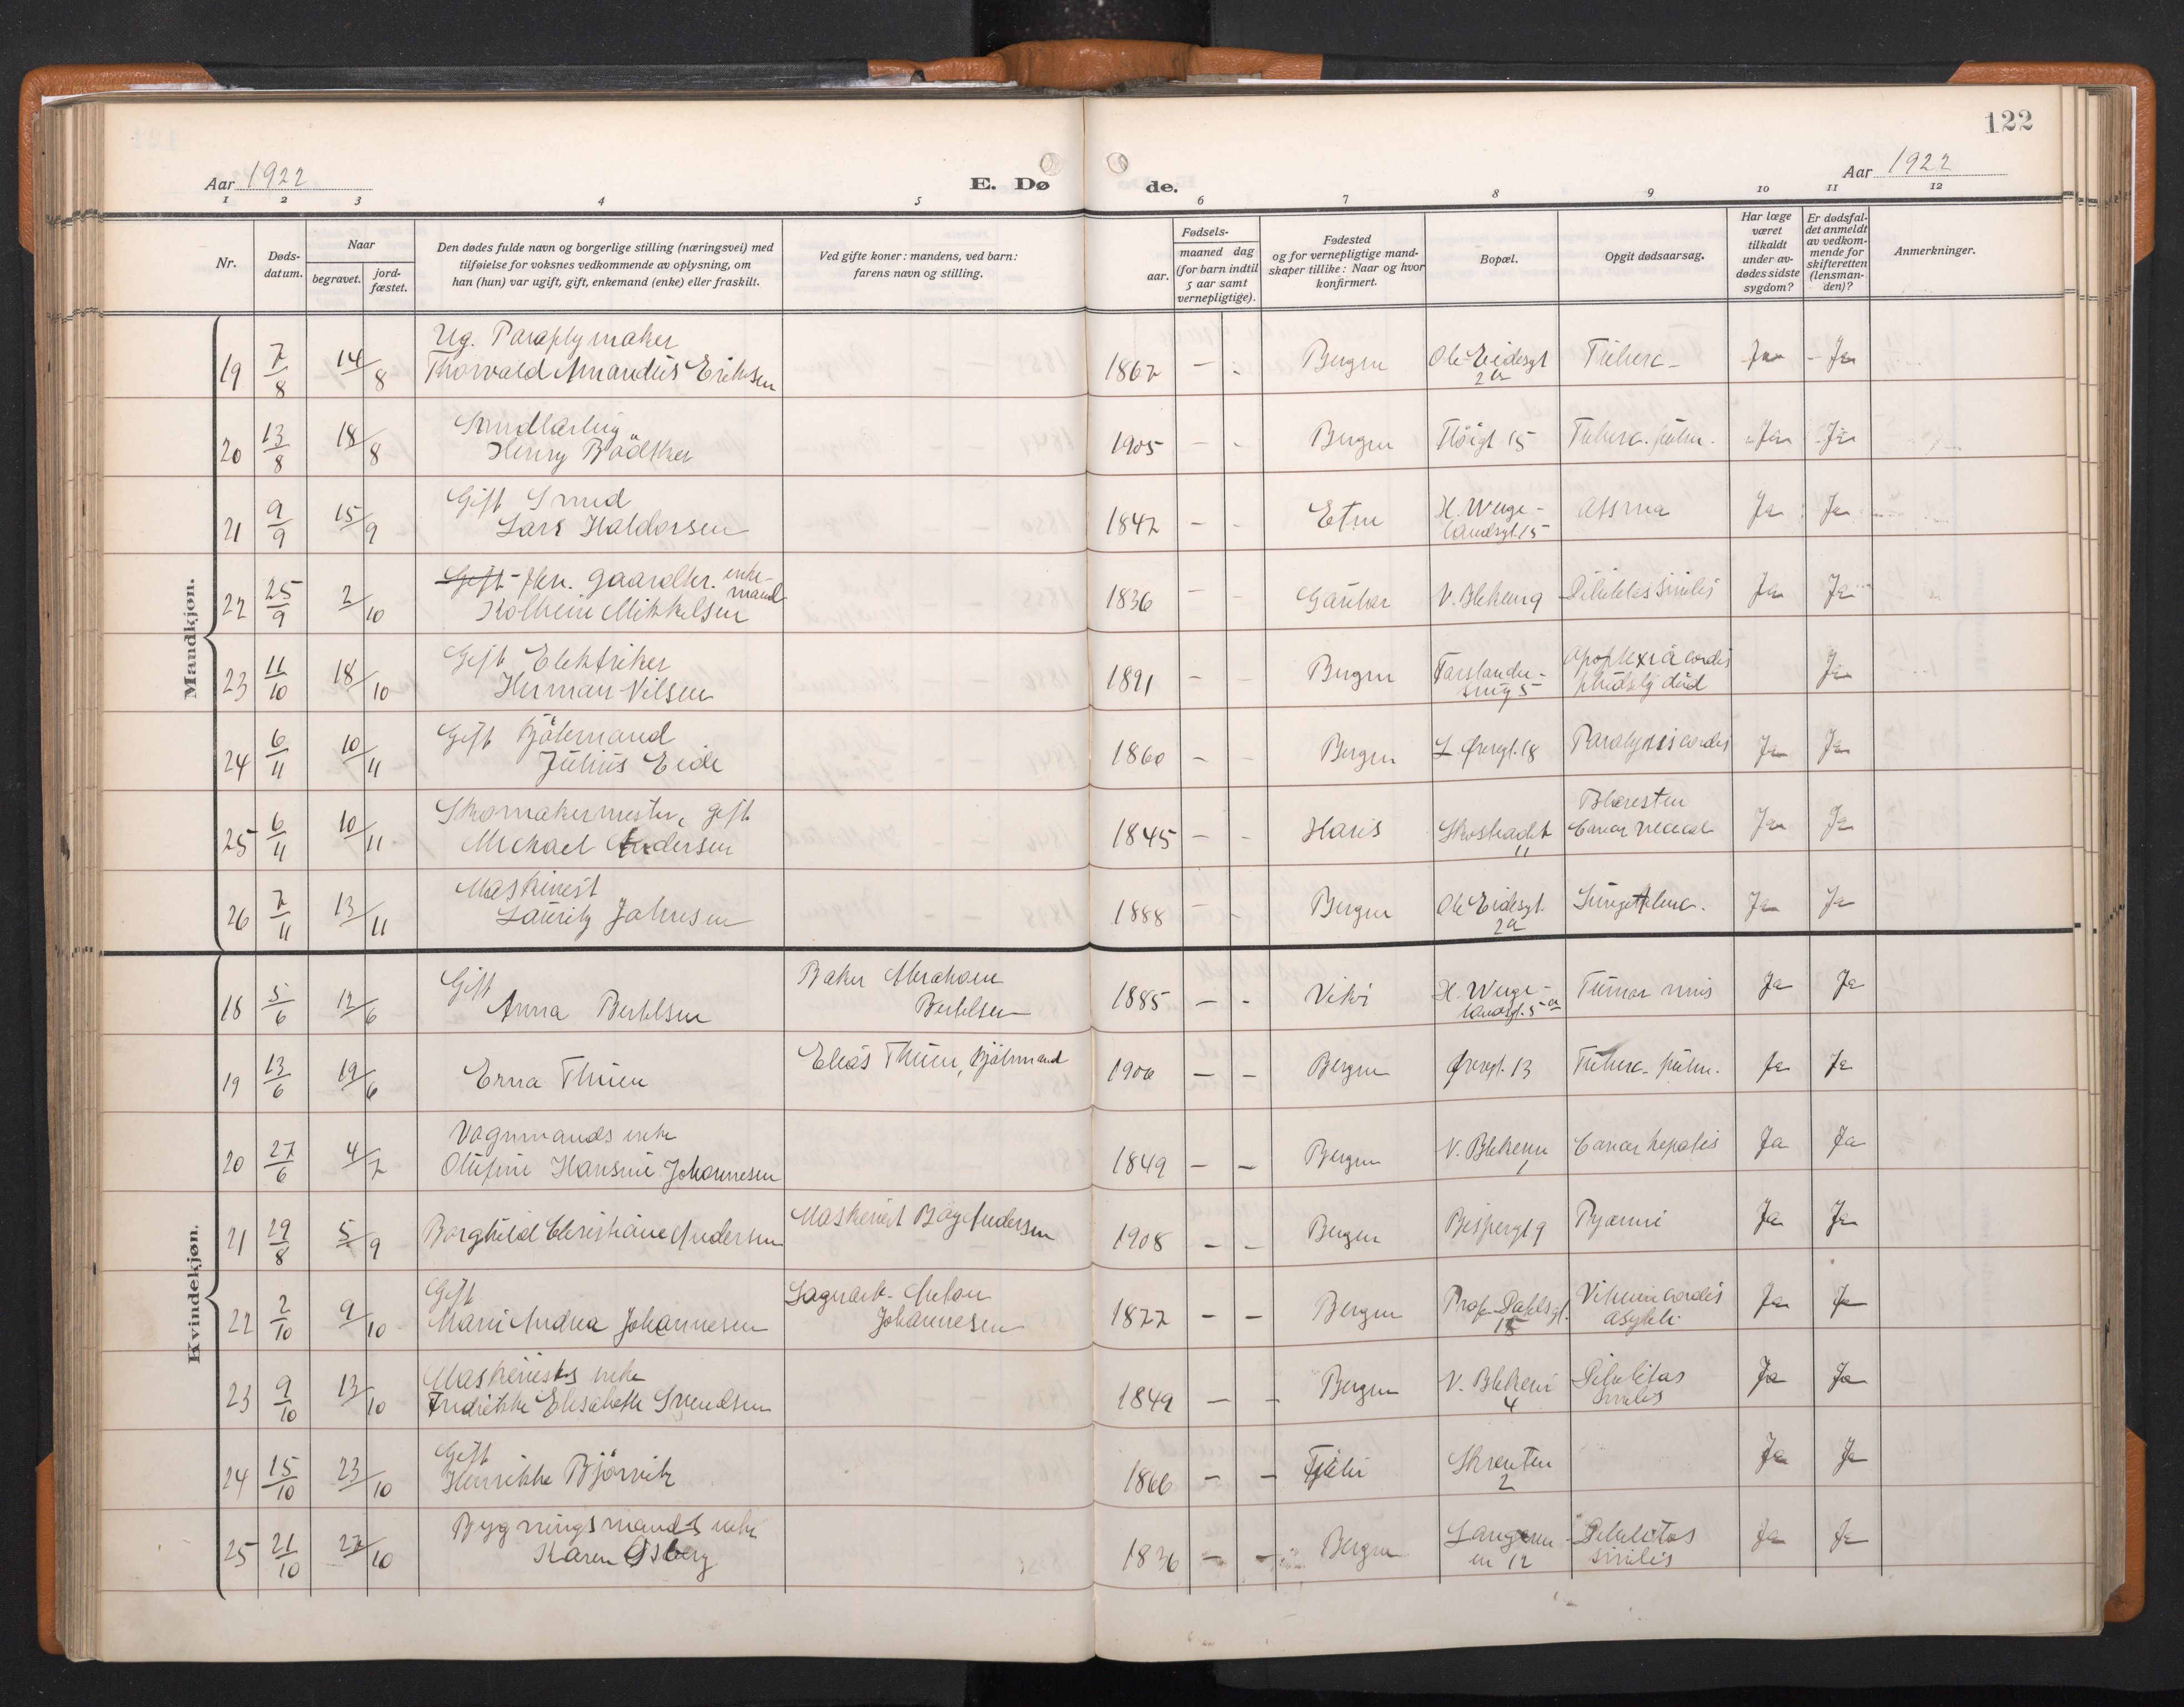 122
Aar 1922
E. Dø
de.
Aar 1922
1 2 3 4 5 6 7 8 9 10 11 12
Nr.
Døds-
datum.
Naar
begravet.
jord-
fæstet.
Den dødes fulde navn og borgerlige stilling (næringsvei) med
tilføielse for voksnes vedkommende av oplysning, om
han (hun) var ugift, gift, enkemand (enke) eller fraskilt.
Ved gifte koner: mandens, ved barn:
farens navn og stilling.
aar.
Fødsels-
maaned dag
(for barn indtil
5 aar samt
vernepligtige).
Fødested
og for vernepligtige mand-
skaper tillike: Naar og hvor
konfirmert.
Bopæl.
Opgit dødsaarsag.
Har læge
været
tilkaldt
under av-
dødes sidste
sygdom?
Er dødsfal-
det anmeldt
av vedkom-
mende for
skifteretten
(lensman-
den)?
Anmerkninger.
Mandkjøn.
Ug. Paraplymaker
19 7/8 14/8 Thorvald Amandus Eriksen 1867 - - Bergen Ole Eidesgt Tuberc- Ja - Ja
2a
Smedlærling
20 13/8 18/8 Henry Bödtker 1905 - - Bergen Fløigt. 15 Tuberc. pulm. Ja Ja
Gift Smed
21 9/9 15/9 Lars Haldorsen 1842 - - Etne H. Werge- Assma Ja Ja
landsgt. 15
Gift fhv. gaardbr. enke-
mand
22 25/9 2/10 Kolbein Mikkelsen 1836 - - Gaular V. Bleken 9 Debilitas senilis Ja Ja
Gift Elektriker
23 11/10 18/10 Herman Nilsen 1891 - - Bergen Apoplexia cordis Ja
pludselig död
Gift Bjölemand
24 6/11 10/11 Julius Eide 1860 - - Bergen L Øvregt. 18 Paralysis cordis Ja Ja
Skomakermester, gift
25 6/11 10/11 Michael Andersen 1845 - - Haus Skostrædt Blæresten Ja Ja
11
Maskinist
26 7/11 13/11 Lauritz Johnsen 1888 - - Bergen Ole Eidesgt. Lungetuberc. Ja Ja
2a
Kvindekjøn.
Gift Baker Abraham
18 5/6 12/6 Anna Bertelsen Bertelsen 1885 - - Vikör H. Werge- Tumor Ja Ja
landsgt. 5a
19 13/6 19/6 Erna Thuen Elias Thuen, Bjölemand 1906 - - Bergen Øvregt. 13 Tuberc. pulm. Ja Ja
Vognmands enke
20 27/6 4/7 Olufine Hansine Johannesen 1849 - - Bergen V. Bleken Cancer hepatis Ja Ja
1
21 29/8 5/9 Borghild Christiane Andersen Maskinist Andersen 1908 - - Bergen Bispengt 9 Pyæmi Ja Ja
Gift Lagerarb. Anton
22 2/10 9/10 Marie Andrea Johannesen Johannesen 1877 - - Bergen Prof. Dahlsgt. Vitium cordis Ja Ja
15
Maskinists enke
23 9/10 13/10 Fredrikke Elisabeth Svendsen 1849 - - Bergen V. Bleken Debilitas Ja Ja
4 senilis
Gift
24 15/10 23/10 Henrikke Björvik 1866 - - Fjeler Skrenten Ja Ja
2
Bygningsmands enke
25 21/10 27/10 Karen Osberg 1836 - - Bergen Debilitas Ja Ja
12 senilis